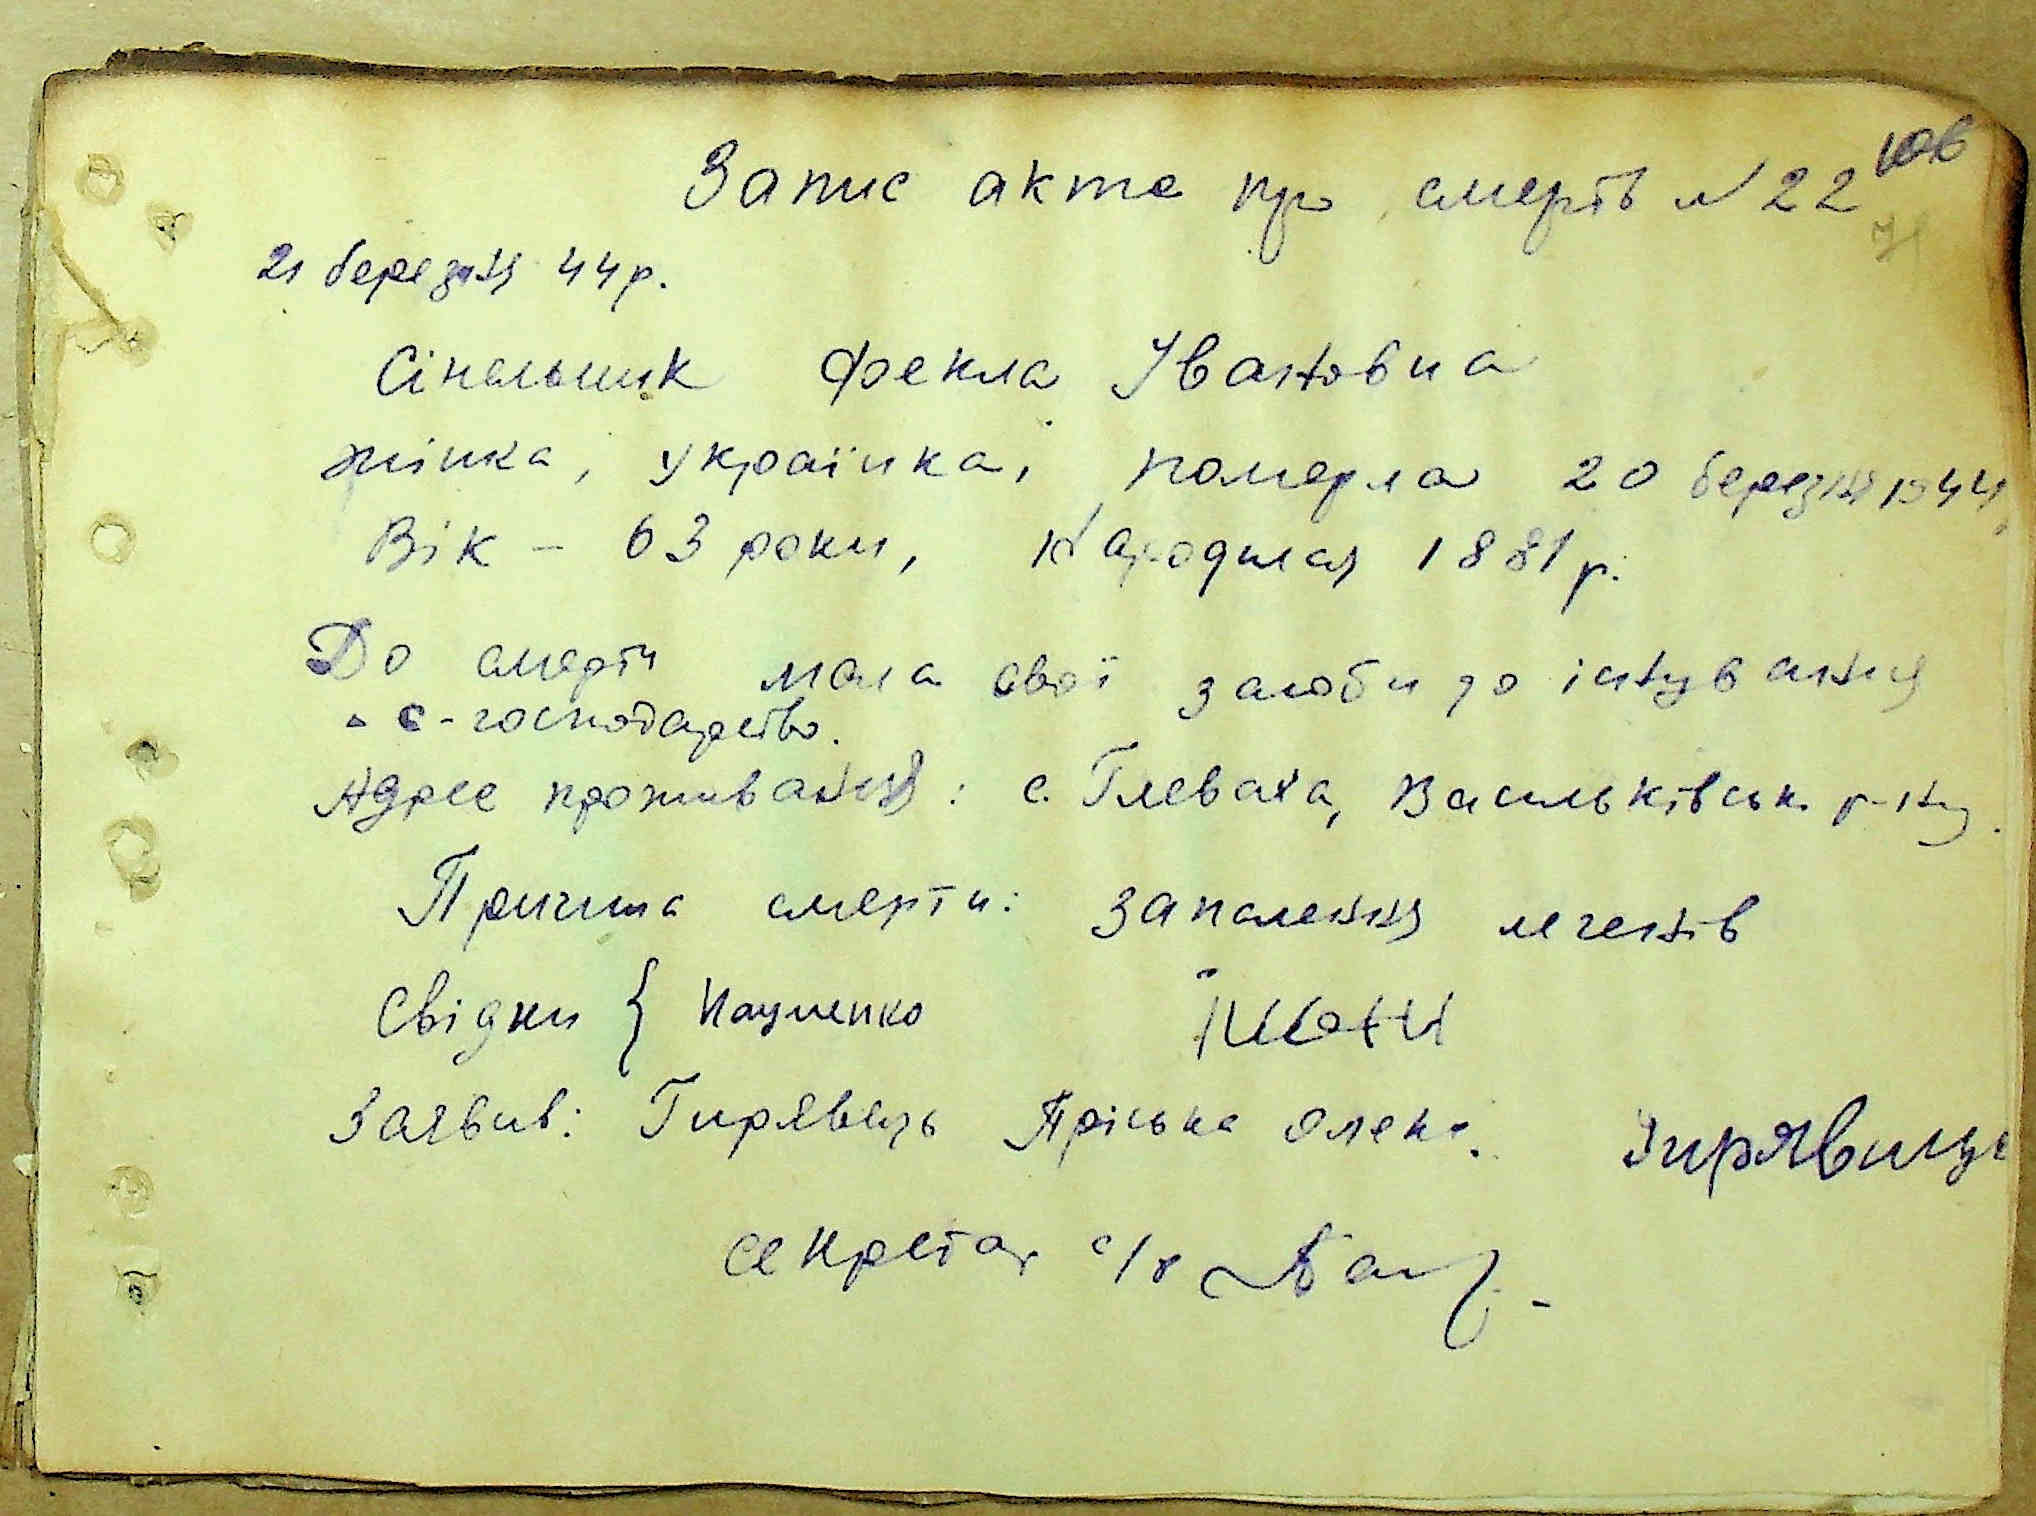 106
Запис акта про смерть N 22
21 березня 44 р.
Сінельник Фекла Івановна
жінка, українка, померла 20 березня 1944
Вік – 63 роки, народилася 1881 р.
До смерти мала свої засоби до існування
с-господарство.
Адрес проживання: с. Глеваха, Васильківськ. р-ну.
Причина смерти: запалення легенів
Свідки { Науменко
Заявив: Гирявець Пріська Олекс. Гирявець
Секретар с/р